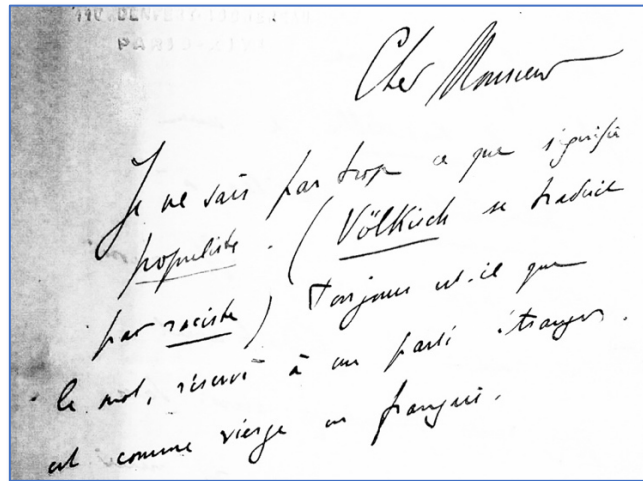 110, DENFERT-ROCHEREAU
PARIS-XIVe
Cher Monsieur
Je ne sais pas trop ce que signifie
populiste. (Völkisch se traduit
par raciste) Toujours est-il que
le mot, réservé à un parti étranger.
est comme vierge en français.